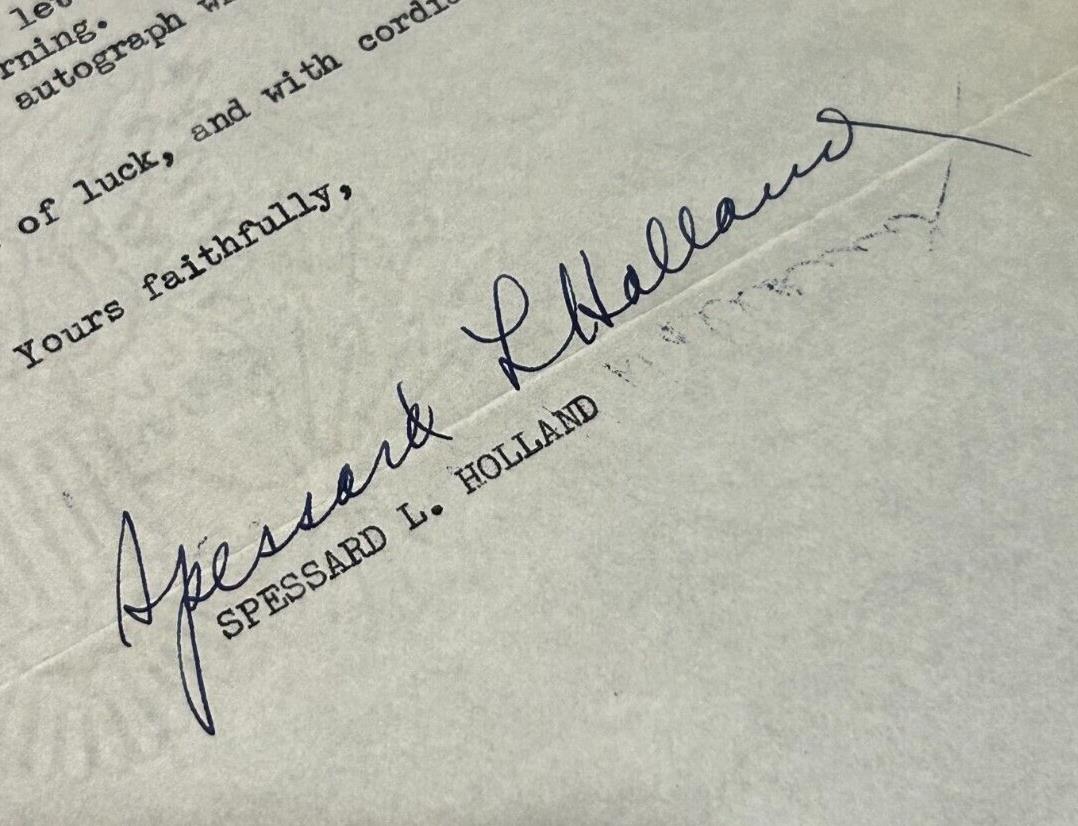 let
rning.
autograph w
of luck, and with cordi
Yours faithfully,
Spessard L Holland
SPESSARD L. HOLLAND